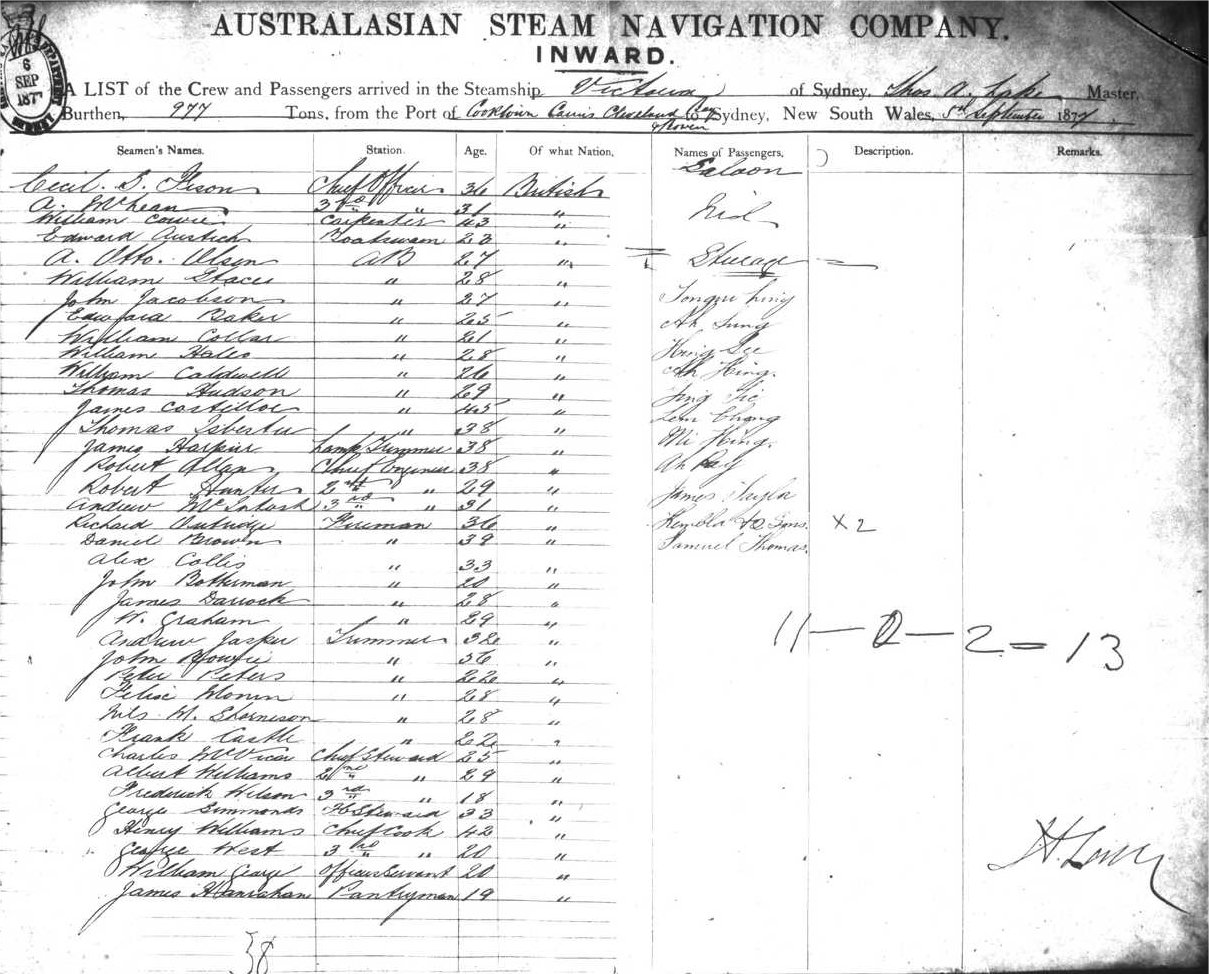 6
SEP
1877
AUSTRALASIAN STEAM NAVIGATION COMPANY.
INWARD.
A LIST of the Crew and Passengers arrived in the Steamship Victoria of Sydney, Thos A. Lake Master,
Burthen, 977 Tons, from the Port of Cooktown Cairns Cleveland Bay to Sydney, New South Wales, 5th September 1877
Seamen's Names. Station. Age. Of what Nation, Names of Passengers, Description. Remarks.
Saloon
Cecil. S. Chief Officer 36 British
A. McLean 3rd " 31 "
Nil
William Cowie Carpenter 43 "
Edward Boatswain 23 "
A. Otto. Olsen AB 27 "
Steerage
William Stacey " 28 "
John Jacobson " 27 "
Edward Baker " 25 "
Ah Sung
William Collar " 21 "
William Hales " 28 "
Hing See
William Caldwell " 26 "
Ah Hing.
Thomas Hudson " 29 "
James Costilloe " 45 "
Chong
Thomas Isbester " 38 "
Mi Hing.
James Lamp Trimmer 38 "
Robert Allan Chief Engineer 38 "
Ah
Robert Hunter 2nd " 29 "
James Taylor
Andrew McIntosh 3rd " 31 "
Richard Fireman 36 "
Kembla & Sons. x 2
Daniel Brown " 39 "
Samuel Thomas.
Alex Collis " 33 "
John Botterman " 20 "
James Darroch " 28 "
W. Graham " 29 "
Andrew Jasper Trimmer 32 "
11 — 0 — 2 = 13
John " 36 "
Peter Peters " 22 "
Felix " 28 "
Nils M. " 28 "
Frank Castle " 22 "
Charles McVicar Chief Steward 25 "
Albert Williams 2nd " 29 "
Frederick Wilson 3rd " 18 "
George Simmonds Steward 33 "
Henry Williams Chief Cook 42 "
George West 3rd " 20 "
William George Officers Servant 20 "
James Hanrahan Pantryman 19 "
38